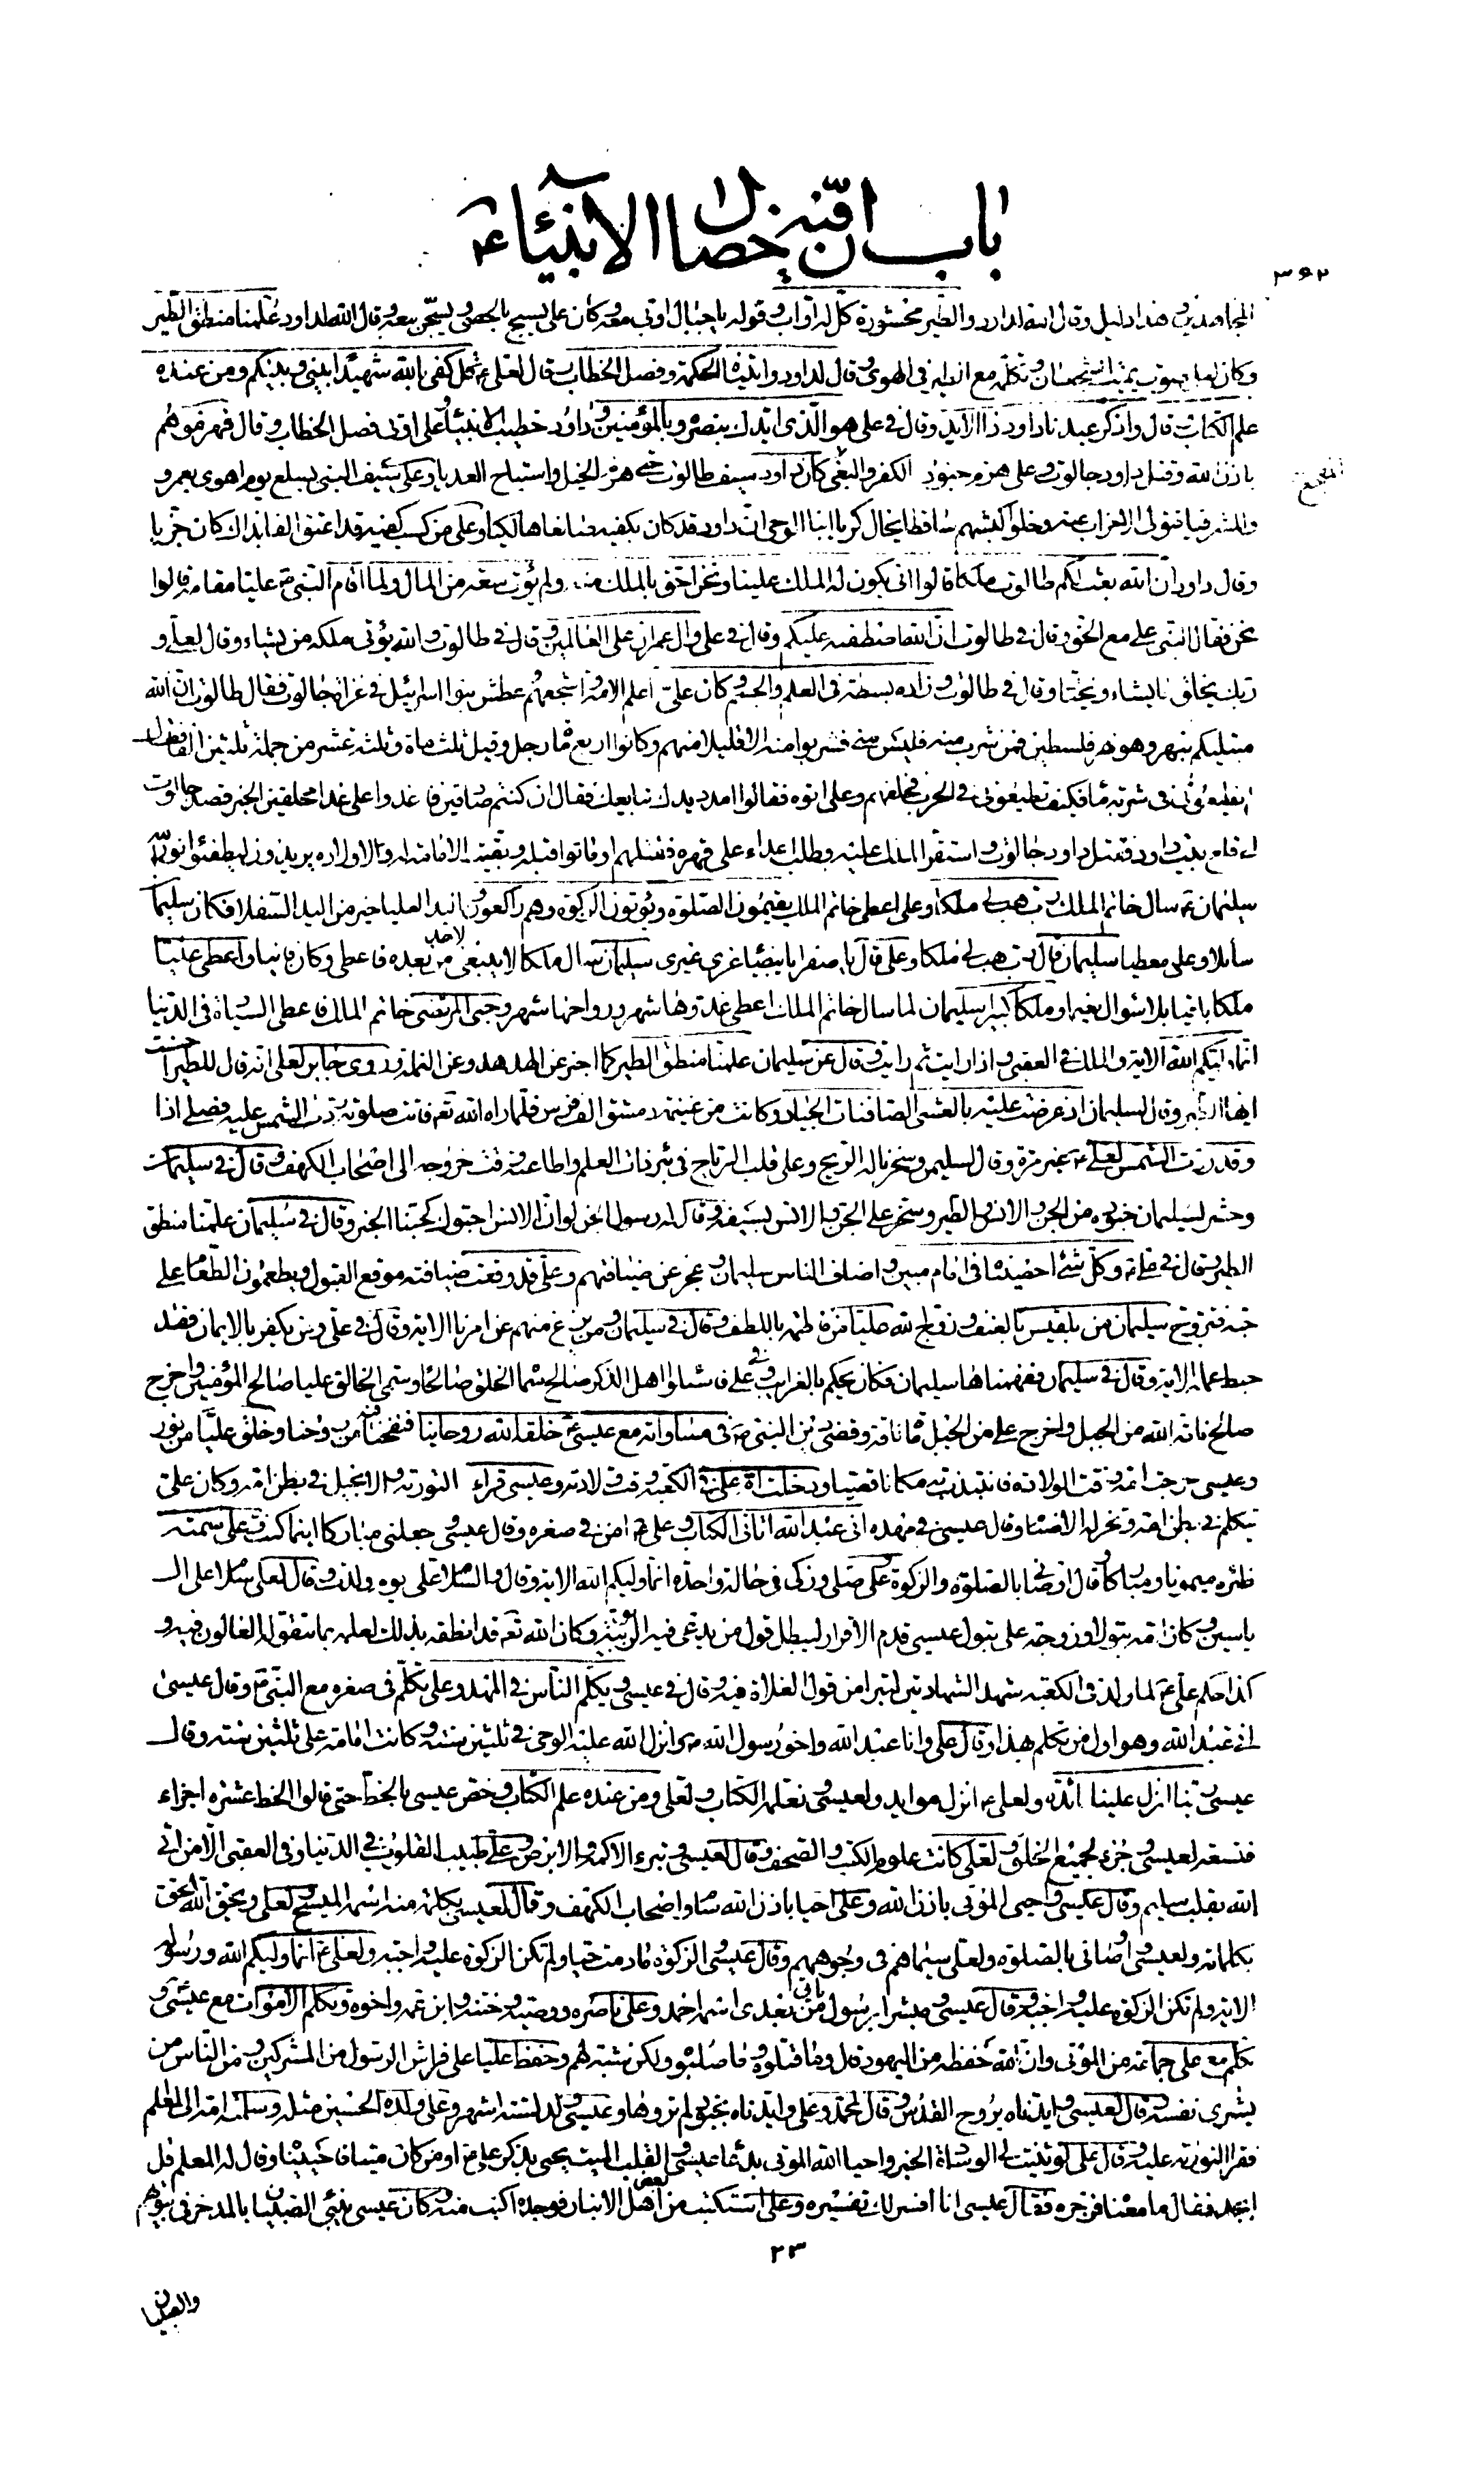 باب اقترانه بخصال الانبياء ع
٣٩٢
المجاهدين وهذا دليل وقال الله لداود والطير محشورة كل له اواب وقوله يا جبال اوبي معه وكان علي يسبح بالحصى ويسبحن معه وقال الله لداود علمنا منطق الطير
وتكلمه مع الطير في الهوى وقال لداود واتيناه الحكمة وفصل الخطاب وقال لعلي ع قل كفى بالله شهيدا بيني وبينكم ومن عنده
علم الكتاب قال واذكر عبدنا داود ذا الايد وقال في علي هو الذي ايدك بنصره وبالمؤمنين وداود خطيب الانبياء وعلي اوتي فصل الخطاب وقال فهزموهم
باذن الله وقتل داود جالوت وعلي هزم جنود الكفر والبغي كان داود سيف طالوت حتى هزم الخيل واستباح العديا وعلي سيف النبي
وقال داود ان الله بعث لكم طالوت ملكا قالوا انى يكون له الملك علينا ونحن احق بالملك منه ولم يؤت سعة من المال ولما اقام النبي ص عليا مقامه قالوا
نحن فقال النبي علي مع الحق قال في طالوت ان الله اصطفيه عليكم وقال في علي وال عمران على العالمين وقال في طالوت والله يؤتي ملكه من يشاء وقال لعلي و
ربك يخلق ما يشاء ويختار وقال في طالوت وزاده بسطة في العلم والجسم وكان علي اعلم الامة واشجعهم عطش بنو اسرائيل في غزاة جالوت فقال طالوت ان الله
مبتليكم بنهر وهو نهر فلسطين فمن شرب منه فليس مني فشربوا منه الا قليلا منهم وكانوا اربع مائة رجل وقيل ثلث مائة وثلثة عشر من جملة ثلثين الفا فقال
لم تطيعوني في شربة ماء فكيف تطيعوني في الحرب فخلفهم وعلي اتوه فقالوا امدد يدك نبايعك فقال ان كنتم صادقين فاغدوا علي غدا محلقين الخبر قصد جالوت
الى قلع بيت داود فقتل داود جالوت واستقر الملك عليه وطلب اعداء علي قهره فقتلهم او ماتوا قبله وبقيت الامامة له والاولاده يريدون ليطفئوا نور الله
سليمان ع سال خاتم الملك رب هب لي ملكا وعلي اعطى خاتم الملك يقيمون الصلوة ويؤتون الزكوة وهم راكعون اليد العليا خير من اليد السفلى فكان سليمان
سائلا وعلي معطيا سليمان قال رب هب لي ملكا وعلي قال يا صفرا يا بيضا غري غيري سليمان سال ملكا لا ينبغي لاحد من بعده فاعطي وكان فانيا واعطي عليا
ملكا باقيا بلا سؤال نعيما وملكا كبيرا سليمان لما سال خاتم الملك اعطي غدوها شهر ورواحها شهر وحبى المرتضى خاتم الملك فاعطى السيادة في الدنيا
انما وليكم الله الاية والملك في العقبى واذا رايت ثم رايت وقال عن سليمان علمنا منطق الطير كما اخبر عن الهدهد وعن النملة وروى جابر لعلي انه قال للطير احسنت
ايها الطير وقال لسليمان اذ عرض عليه بالعشي الصافنات الجياد وكانت من غنيمة دمشق الف فرس فلما راه الله تعه فاتت صلوته ردت الشمس عليه فصلى اداء
وقد ردت الشمس لعلي ع غير مرة وقال لسليمن وسخرنا له الريح وعلي قلب الرياح في بئر ذات العلم واطاعته وقت خروجه الى اصحاب الكهف وقال في سليمان
وحشر لسليمان جنوده من الجن والانس والطير وسخر علي الجن والانس بسيفه وقال له رسول الجن لو ان الانس احبوك كحبنا الخبر وقال في سليمان علمنا منطق
الطير وقال في علي ع وكل شئ احصيناه في امام مبين واضاف الناس سليمان وعجز عن ضيافتهم وعلي قد وقعت ضيافته موقع القبول ويطعمون الطعام على
حبه وتزوج سليمان من بلقيس بالعنف وزوج الله عليا من فاطمة باللطف وقال في سليمان ومن يزغ منهم عن امرنا الاية وقال في علي ومن يكفر بالايمان فقد
حبط عمله الاية وقال في سليمان ففهمناها سليمان فكان يحكم بالغرايب وفي علي فاسئلوا اهل الذكر صالح سما الخلق صالحا وسمى الخالق عليا صالح المؤمنين واخرج
صالح ناقة الله من الجبل واخرج علي من الجبل مائة ناقة وقضى دين النبي ص في مساواته مع عيسى ع خلقه الله روحانيا فنفخنا فيه من روحنا وخلق عليا من نور
وعيسى خرجت امه وقت الولادة فانتبذت به مكانا قصيا ودخلت ام علي في الكعبة وقت ولادته وعيسى قراء التورية والانجيل في بطن امه وكان علي
يتكلم في بطن امه وتخر له الاصنام وقال عيسى في مهده اني عبد الله اتاني الكتاب وعلي امن في صغره وقال عيسى وجعلني مباركا اينما كنت وعلي سمته
ظئره ميمونا ومباركا وقال اوصاني بالصلوة والزكوة وعلي صلى وزكى في حالة واحدة انما وليكم الله الاية وقال والسلام علي يوم ولدت وقال لعلي سلام على ال
ياسين وكان امه بتول وزوجة علي بتول عيسى قدم الاقرار ليبطل قول من يدعي فيه الربوبية وكان الله تعه قد انطقه بذلك لعلمه بما يتقوله الغالون فيه و
كذا حكم علي ع لما ولد في الكعبة شهد الشهادتين ليتبرأ من قول الغلاة فيه وقال في عيسى ويكلم الناس في المهد وعلي تكلم في صغره مع النبي ص وقال عيسى
اني عبد الله وهو اول من تكلم بهذا وقال علي وانا عبد الله واخو رسول الله ص وانزل الله عليه الوحي في ثلثين سنة وكانت امامة علي ثلثين سنة وقال
عيسى ربنا انزل علينا مائدة ولعلي ع انزل موايد ولعيسى ونعلمه الكتاب ولعلي ومن عنده علم الكتاب وخص عيسى بالخط حتى قالوا الخط عشرة اجزاء
فتسعة لعيسى وجزء لجميع الخلق ولعلي كانت علوم الكتب والصحف وقال لعيسى وتبرء الاكمه والابرص وعلي طبيب القلوب في الدنيا وفي العقبى الا من اتى
الله بقلب سليم وقال عيسى واحيي الموتى باذن الله وعلي احيا باذن الله سام واصحاب الكهف وقال لعيسى بكلمة منه اسمه المسيح ولعلي ويحق الله الحق
بكلماته ولعيسى اوصاني بالصلوة ولعلي سيماهم في وجوههم وقال عيسى والزكوة ما دمت حيا ولم تكن الزكوة عليه واجبة ولعلي ع انما وليكم الله ورسوله
الاية ولم تكن الزكوة عليه واجبة وقال عيسى ومبشرا برسول ياتي من بعدي اسمه احمد وعلي ناصره ووصيه وختنه وابن عمه واخوه وتكلم الاموات مع عيسى و
تكلم مع علي جماعة من الموتى وان الله حفظه من اليهود قال وما قتلوه وما صلبوه ولكن شبه لهم وحفظ عليا على فراش الرسول من المشركين ومن الناس من
يشري نفسه وقال لعيسى وايدناه بروح القدس وقال لمحمد وعلي وايدناه بجنود لم تروها وعيسى ولد لستة اشهر وعلي ولده الحسين مثله وسلمته امه الى المعلم
فقرا التورية عليه وقال علي لو ثنيت لي الوسادة الخبر واحيا الله الموتى بدعاء عيسى والقلب الميت يحيى بذكر علي ع او من كان ميتا فاحييناه وقال له المعلم قل
ابجد فقال ما معناه فزجره فقال عيسى انا افسر لك تفسيره وعلي استكتب من بعض اهل الانبار فوجده اكتب منه وكان عيسى ينبئ الصبيان بالمدخر في بيوتهم
٢٣
والصبيان